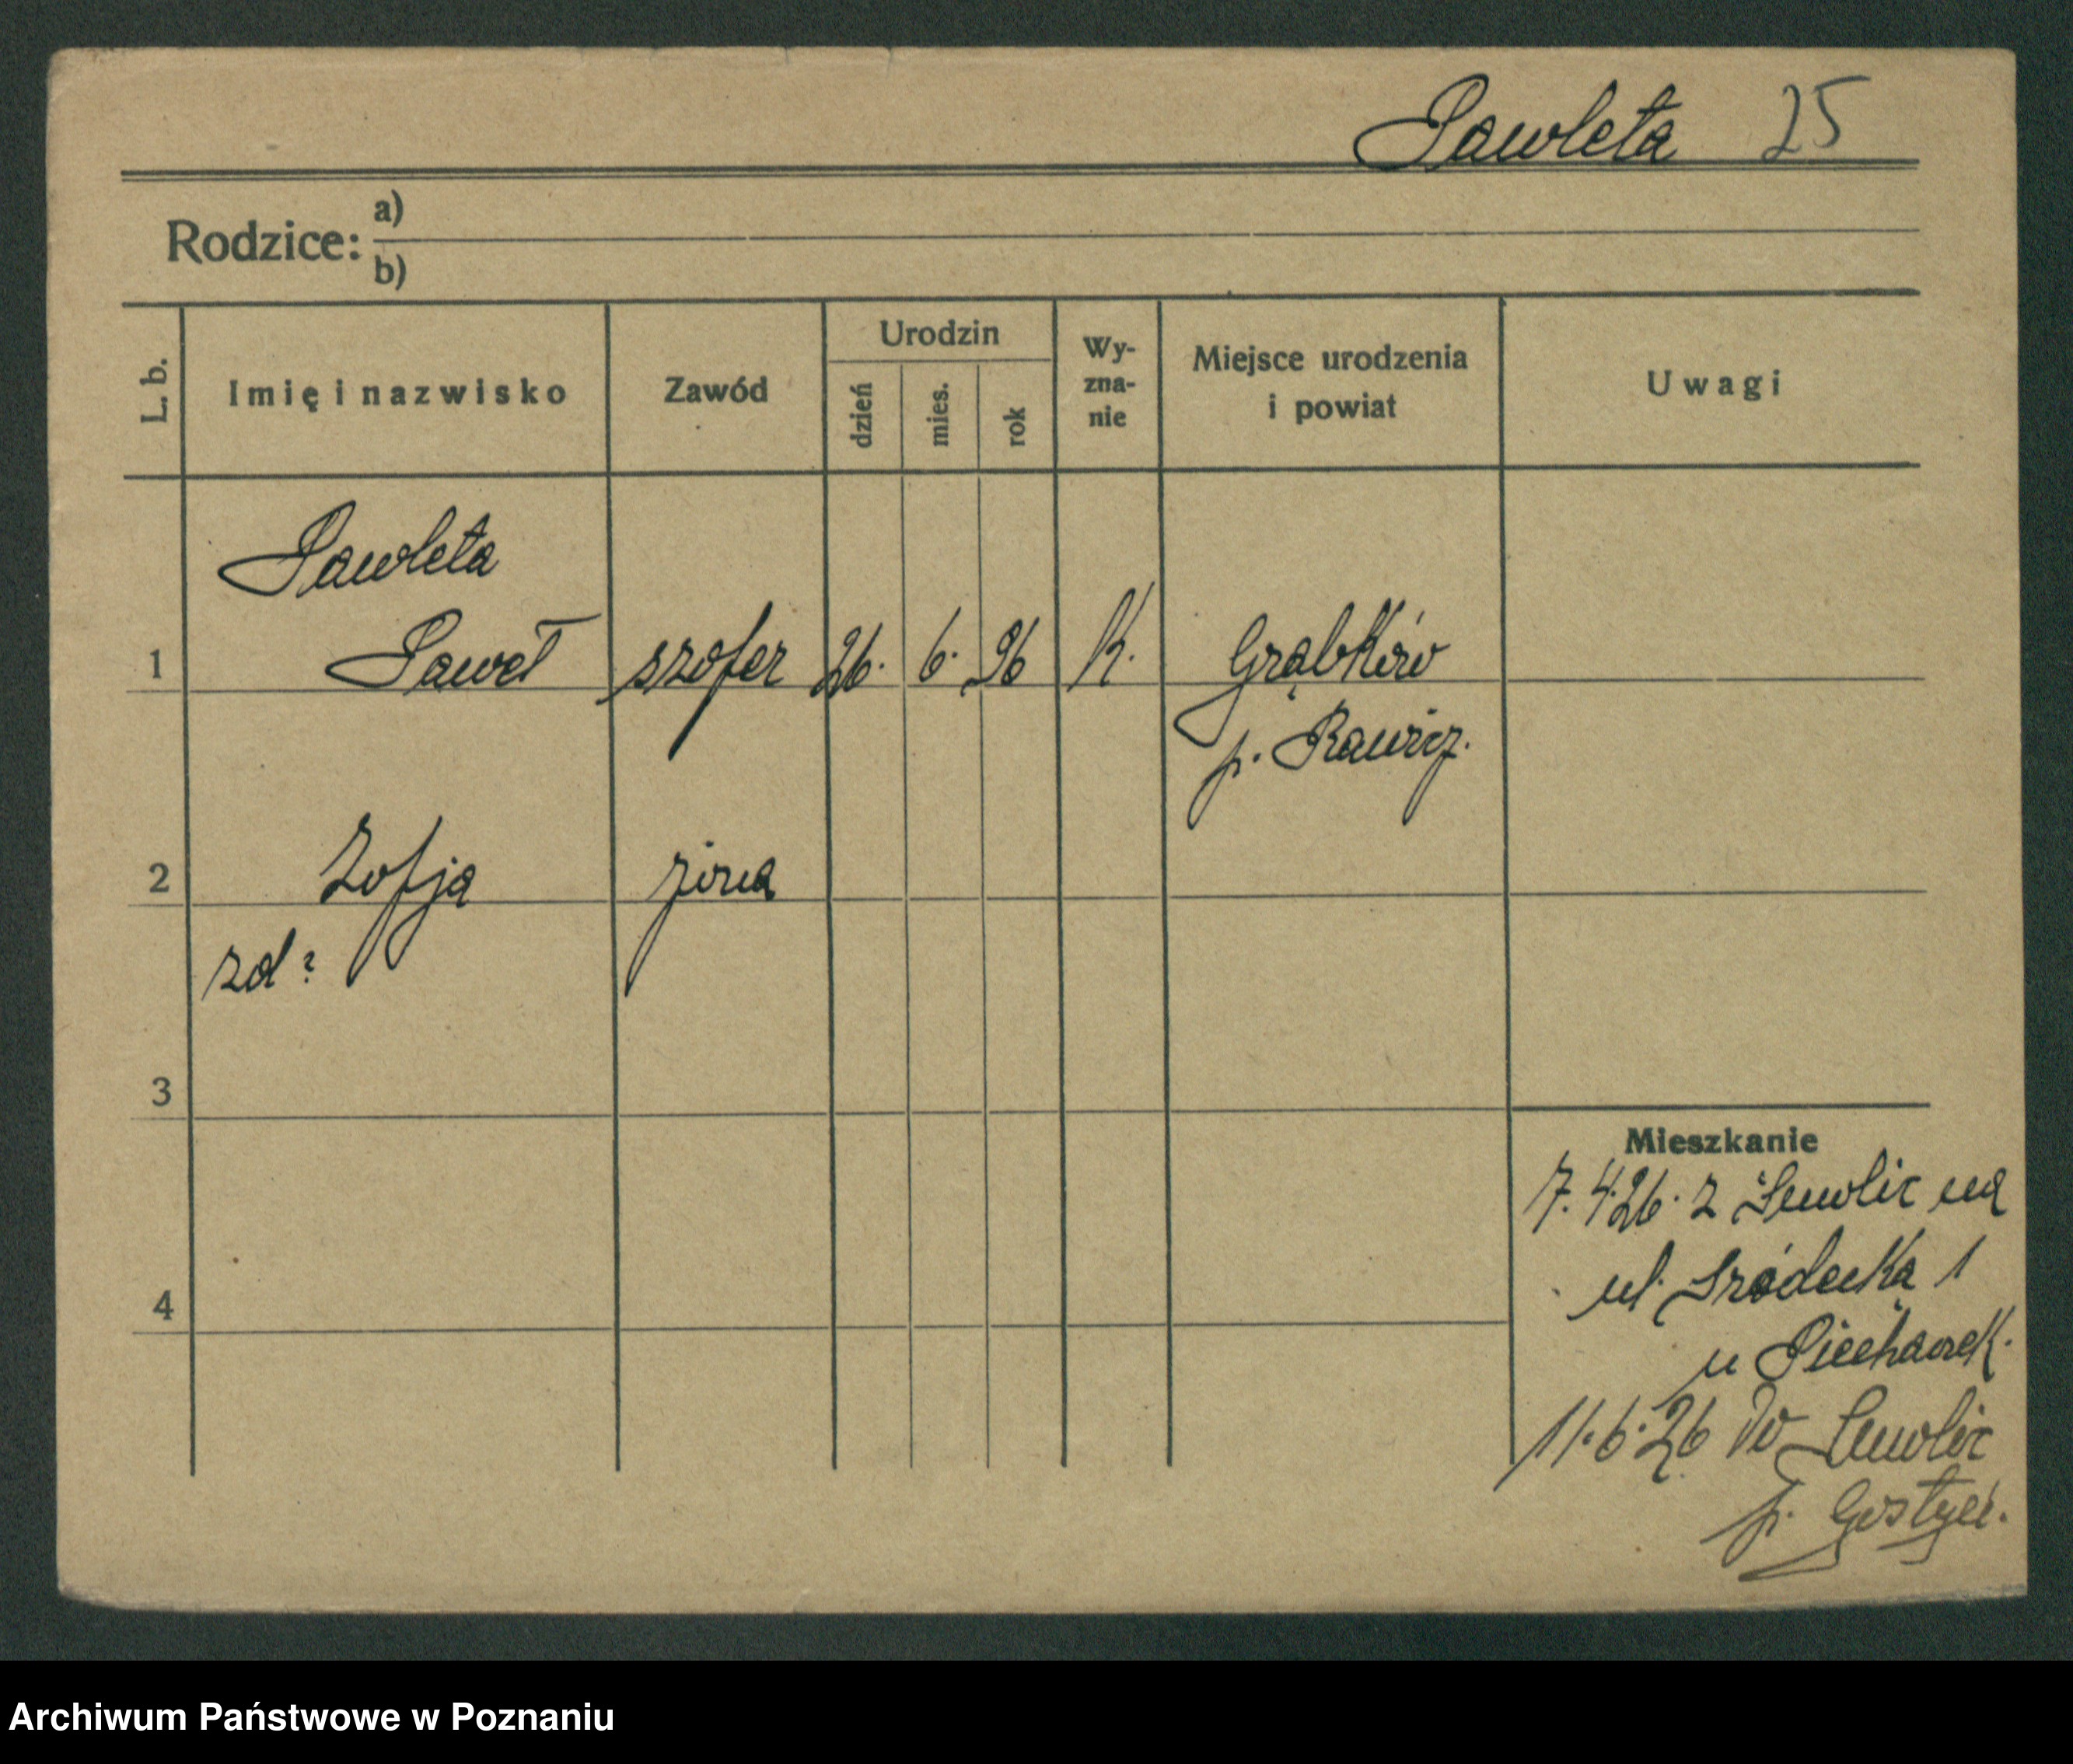 Pawleta 25
Rodzice: a)
b)
L. b.
Imię i nazwisko
Zawód
Urodzin
dzień
mies.
rok
Wy-
zna-
nie
Miejsce urodzenia
i powiat
Uwagi
Pawleta
1 Paweł szofer 26. 6. 96 K. Grąbków
p. Rawicz.
2 Zofja żona
zd ?
3
Mieszkanie
7.4.26. z Smolic na
ul. Śródecka 1
4
u Piechaczek.
11.6.26 do Smolic
p. Gostyń.
Archiwum Państwowe w Poznaniu